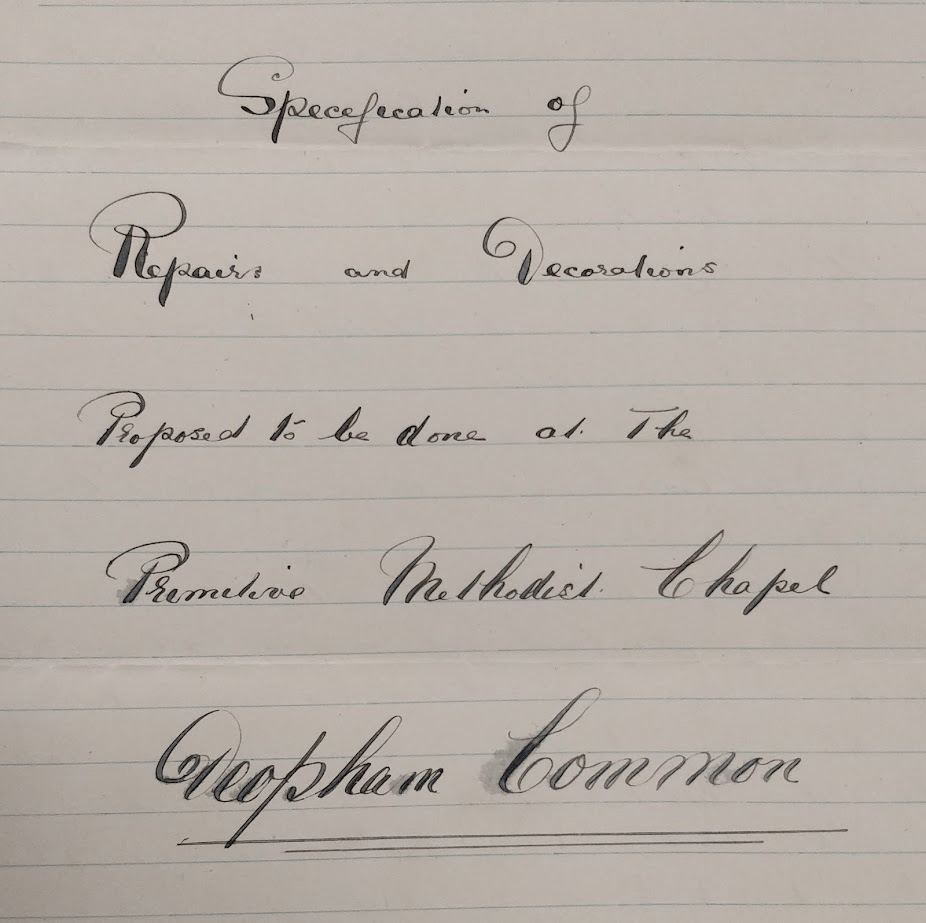 Specefication of
Repairs and Decorations
Proposed to be done at The
Primitive Methodist Chapel
Deopham Common